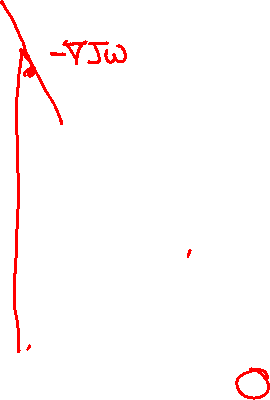 -∇Jω